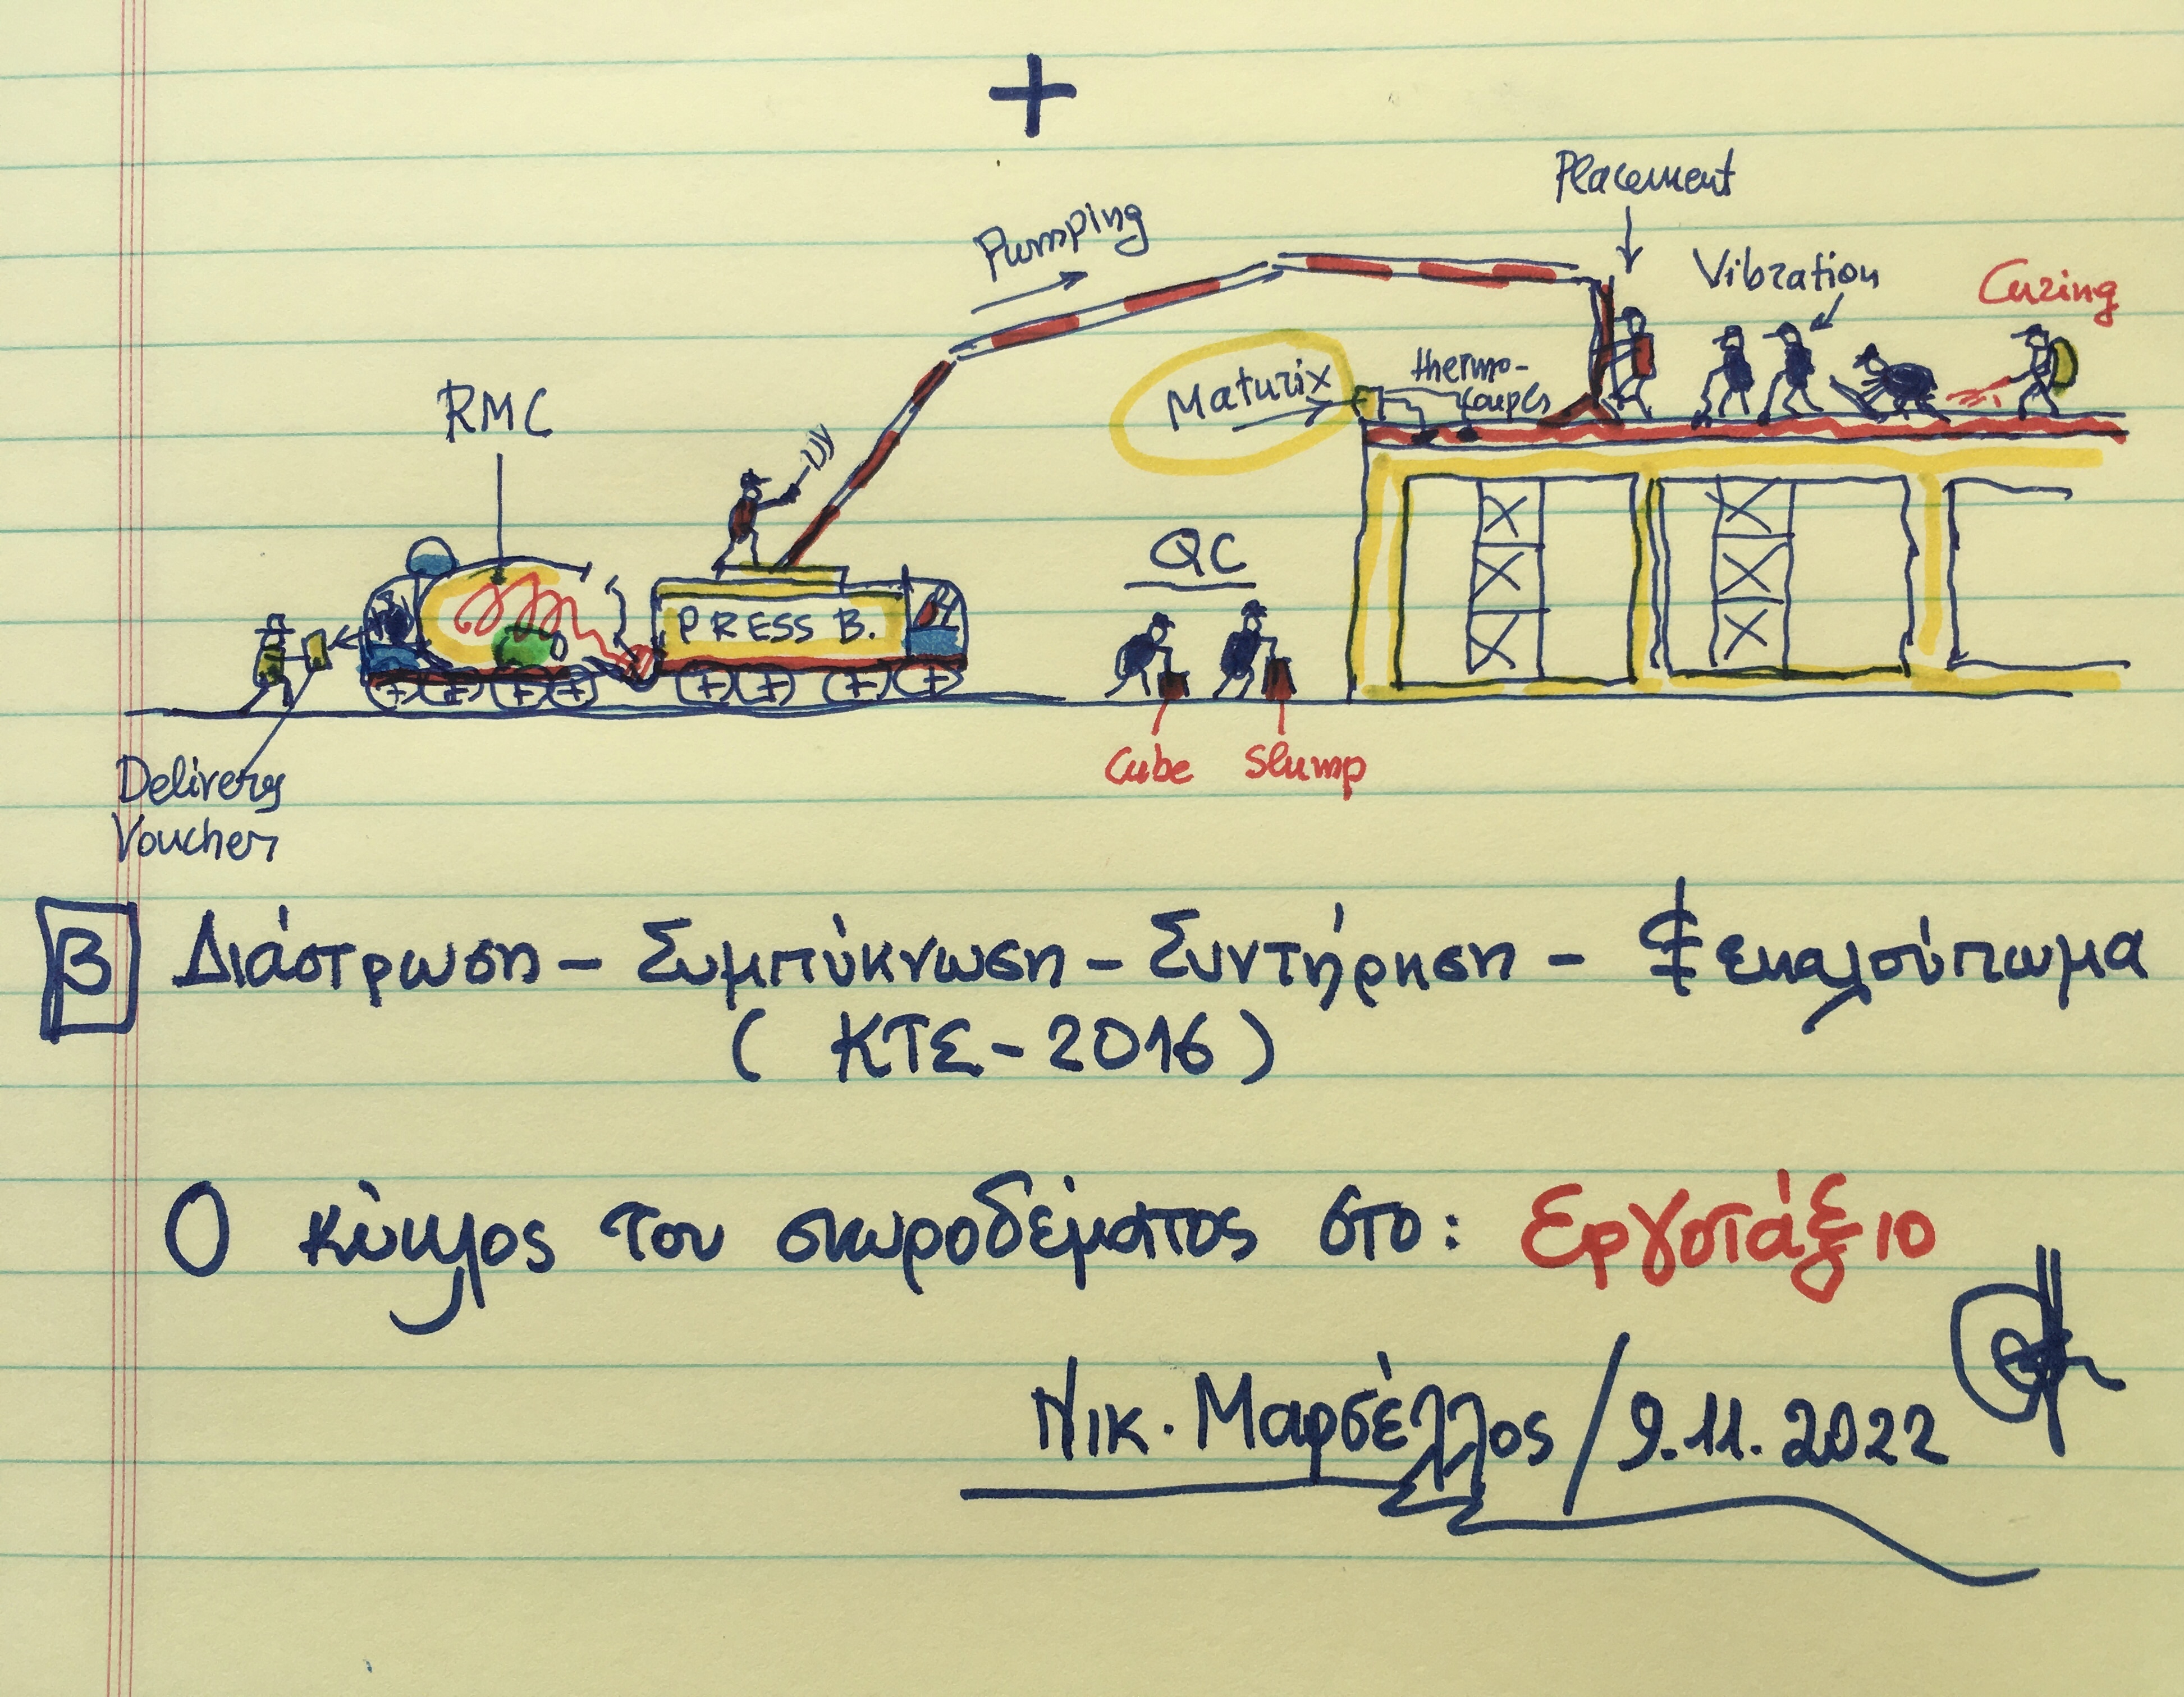 +
Placement
Pumping
Vibration
Curing
Maturix
thermo-
couples
RMC
QC
PRESS B.
Cube Slump
Delivery
Voucher
β Διάστρωση - Συμπύκνωση - Συντήρηση - Ξεκαλούπωμα
( ΚΤΣ - 2016 )
Ο κύκλος του σκυροδέματος στο: Εργοτάξιο
Νικ. Μαρσέλλος / 9.11.2022